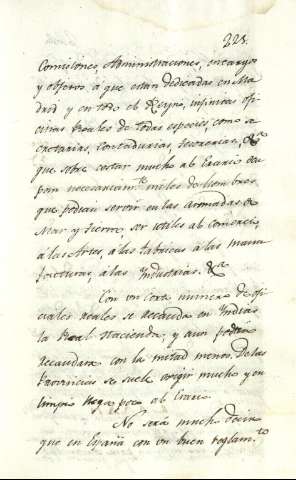 223.
Comisiones, Administraciones, encargos
y objetos à que estan dedicadas en Ma
drid y en todo el Reyno, infinitas ofi
cinas Reales de todas especies, como se
cretarias, Contadurias, Tesorerias, &ª
que sobre costar mucho al Erario ocu
pan necesariamte miles de hombres
que podian servir en las armadas de
Mar y tierra, ser utiles al comercio,
à las Artes, à las fabricas à las manu
facturas, à las Industrias. &ª
Con un corto numero de ofi
ciales reales se recauda en Indias
la Real Hacienda, y aun podria
recaudarse con la mitad menos. De las
Provincias se suele exigir mucho y en
limpio llega poco al Erario.
No será mucho decir
que en España con un buen reglamto